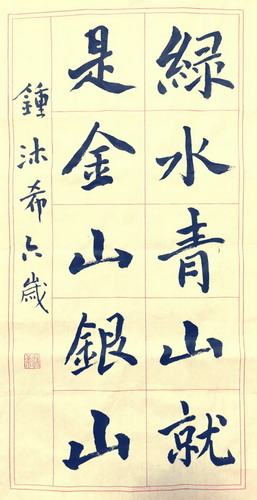 綠水青山就
是金山銀山
鍾沐希六歲